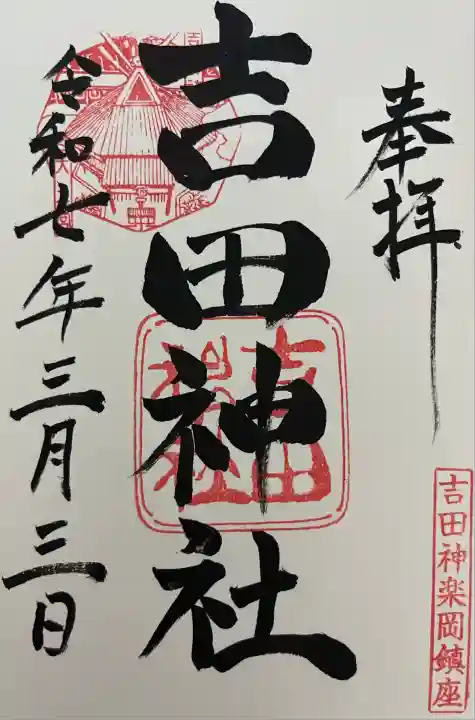 奉拝
吉田神楽岡鎮座
吉田神社
吉田
神社
令和七年三月三日